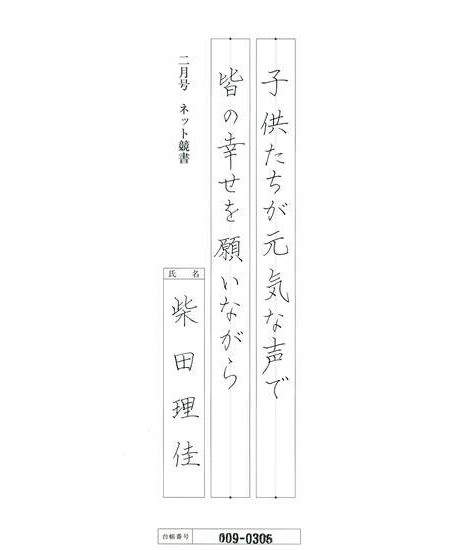 子供たちが元気な声で
皆の幸せを願いながら
二月号 ネット競書
氏名
柴田理佳
台帳番号 009-0306